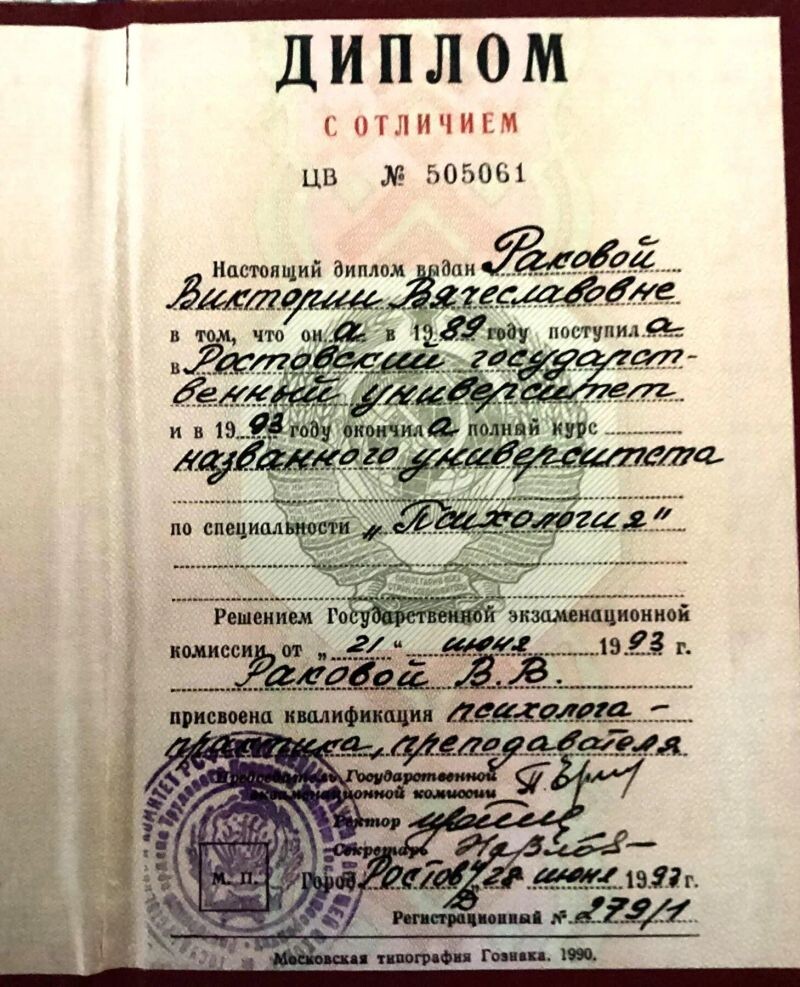 ДИПЛОМ
С ОТЛИЧИЕМ
ЦВ № 505061
Настоящий диплом выдан Раковой
Виктории Вячеславовне
в том, что она в 1989 году поступила
в Ростовский государст-
венный университет
и в 1993 году окончила полный курс
названного университета
по специальности „Психология"
Решением Государственной экзаменационной
комиссии от „21" июня 1993 г.
Раковой В.В.
присвоена квалификация психолога-
практика, преподавателя
Председатель Государственной
экзаменационной комиссии
Ректор
Секретарь
М. П.
Город Ростов 28 июня 1993 г.
Регистрационный № 279/1
Московская типография Гознака. 1990.